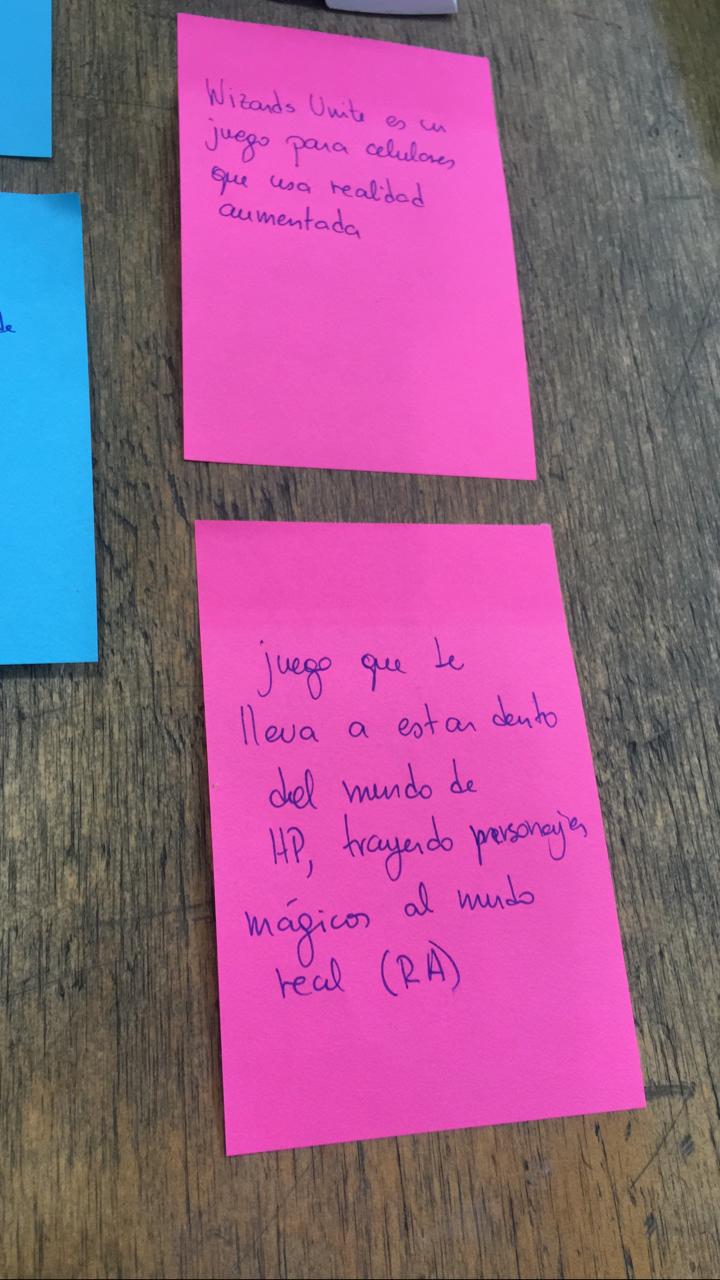 Wizards Unite es un
juego para celulares
que usa realidad
aumentada
de
juego que te
lleva a estar dento
del mundo de
HP, trayendo personajes
mágicos al mundo
real (RA)